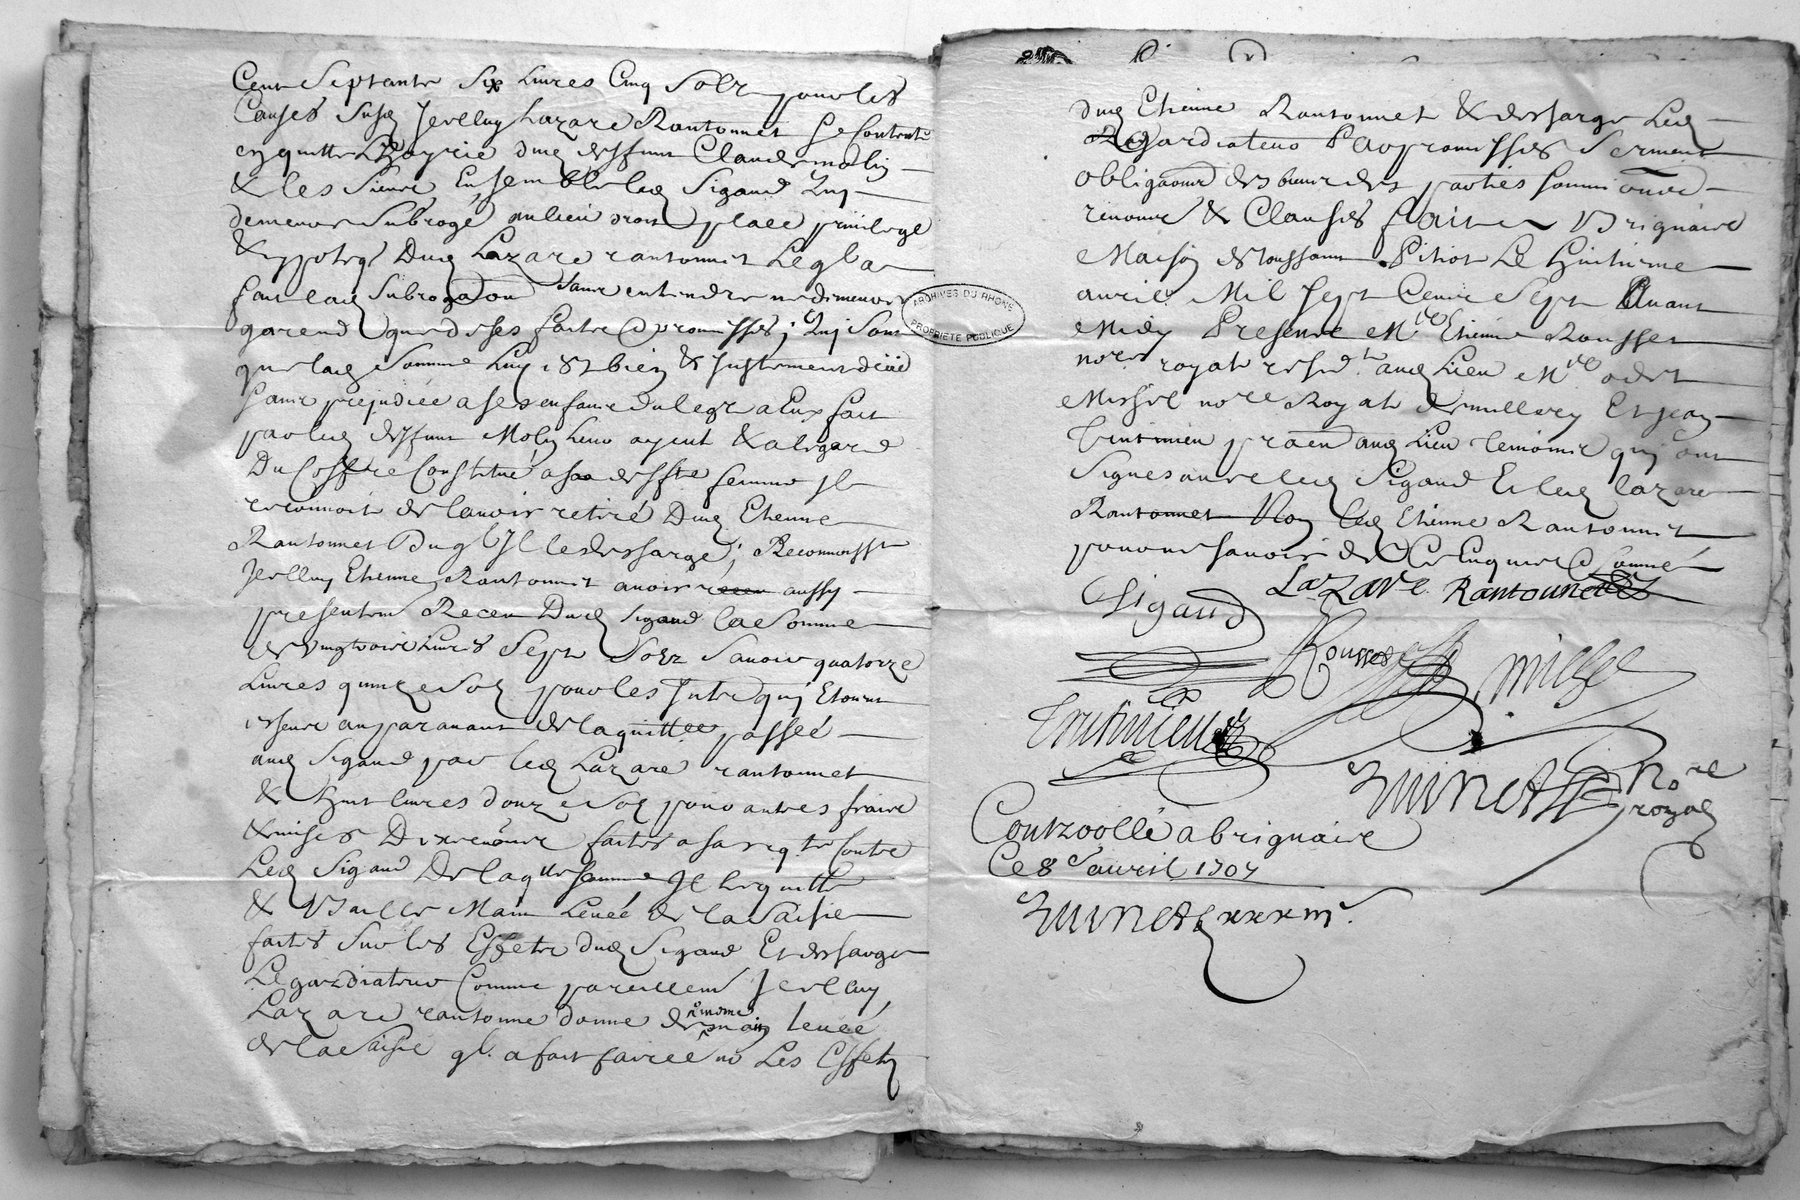 Cent Septante Six Livres Cinq Solz pour les
Causes Susd Icelluy Lazare Rantonnet Se Contente
en quitte dud deffunt Claude molin
& les Siens Ensemble led Sigaud
demeure Subrogé au lieu droit place privilege
& ypoteq Dud Lazare rantonnet Leql a
fait lad Subrogaon Sans entendre ne demeurer
garend que de ses faitz & promesses ; Sont
que lad Somme Luy est bien & Justement deüe
Sans prejudice a ses enfans du legz a Eux fait
par led deffunt Molin Leur ayeul & alegard
Du Coffre Constitué a sa deffte femme Il
reconnoit de lavoir retiré Dud Etienne
Rantonnet Duql Il les dessarge ; Reconnoiss
Icelluy Etienne Rantonnet avoir aussy
presentem Receu Dud Sigaud la Somme
de vingt trois Livres Sept Solz Savoir quatorze
Livres quinze Sol pour les Intz qui Etoient
auparavant de la quittce passée
aud Sigaud par led Lazare rantonnet
& huit livres douze Sol pour autres fraix
& mises Dexecuons faites a sa reqte Contre
Led Sigaud De laqlle Somme Il le quitte
& Baille Main Levée de la Saisie
faites Sur les Effetz dud Sigaud Et dessarge
Le gardiateur Comme pareillem Icelluy
Lazare rantonne donne de mesme main levée
de la Saisie ql. a fait faire Les Effetz
dud Etienne Rantonnet & dessarge Led
gardiateur Par promesses Serment
obligaons des biens des parties Soumissions
renons & Clauses fait a Brignais
Maison de toussaint Pitiot Le huitieme
avril Mil Sept Cent Sept Avant
Midy Presens Me Etienne Rousset
nore royal resid. aud Lieu Me odet
Michel nore Royal de millery Et Jean
praen aud Lieu temoins qui ont
Signes avec led Sigaud Et led Lazare
Rantonnet Non led Etienne Rantonnet
pour ne savoir de Ce Enquis & Sommé
Sigaud Lazare Rantonnet
Rousset michel
nore
royal
Controollé a brignais
Ce 8e avril 1707
ARCHIVES DU RHONE
PROPRIETE PUBLIQUE